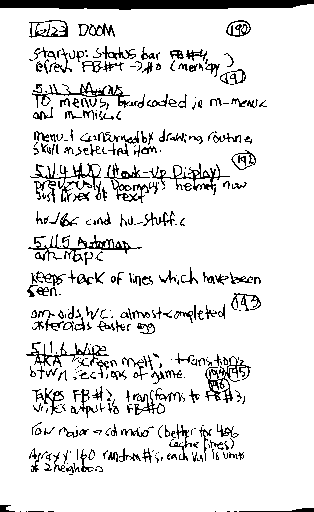 6/23 DOOM 190
startup: status bar FB #4,
refresh FB#4 → #0 (memcpy) 191
5.11.3 Menus
10 menus, hardcoded in m-menu.c
and m_misc.c
menu consumed by drawing routine,
skull on selected item.
192
5.11.4 HUD (Head-Up Display)
previously, Doomguy's helmet, now
just lines of text
hu_lib.c and hu_stuff.c
5.11.5 Automap
am_map.c
keeps track of lines which have been
seen.
193
am-oids.h/c: almost completed
asteroids easter egg
5.11.6 Wipe
AKA "screen melt", transitions
btwn sections of game. 194 195
196
Takes FB#2, transforms to FB#3,
writes output to FB#0
row major → col major (better for 486
cache lines)
Array of 160 random #'s, each val is
of 2 neighbors